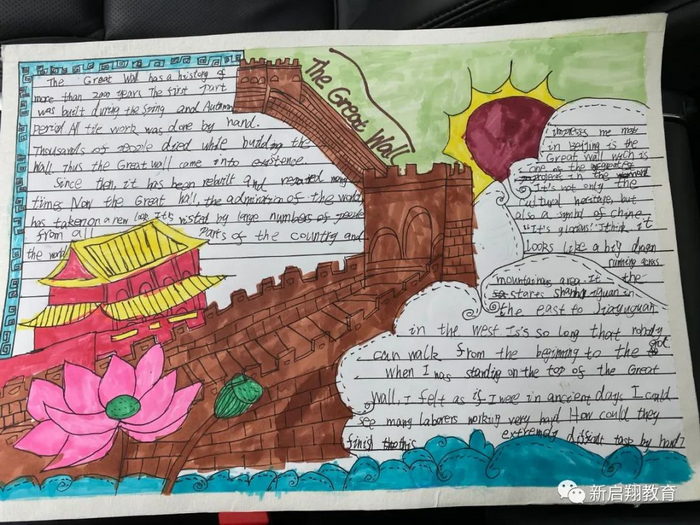 The Great Wall
The Great Wall has a history of
more than 2000 years The first Part
was built during the Spring and Autumn
period All the work was done by hand.
Thousands of People died while building the
wall. Thus the Great wall came into existence
Since then it has been rebuilt and repaired many
times Now the Great Wall, the admiration of the world
has taken on a new look It's visted by large numbers of people
from all parts of the country and
the world
impresses me most
in Beijing is the
Great wall which is
one of the
in the
It's not only the
Cultural heritage, but
also a symbol of china
It's glorious! I think it
looks like a big dragon
running across
mountainous area. It the
starts shanhaiguan in
the east to Jiayuguan
in the west It's so long that nobody
can walk from the beginning to the
When I was standing on the top of the Great
Wall, I felt as if I were in ancient days I could
see many laborers working very hard How could they
finish this extremely difficult task by hand?
新启翔教育